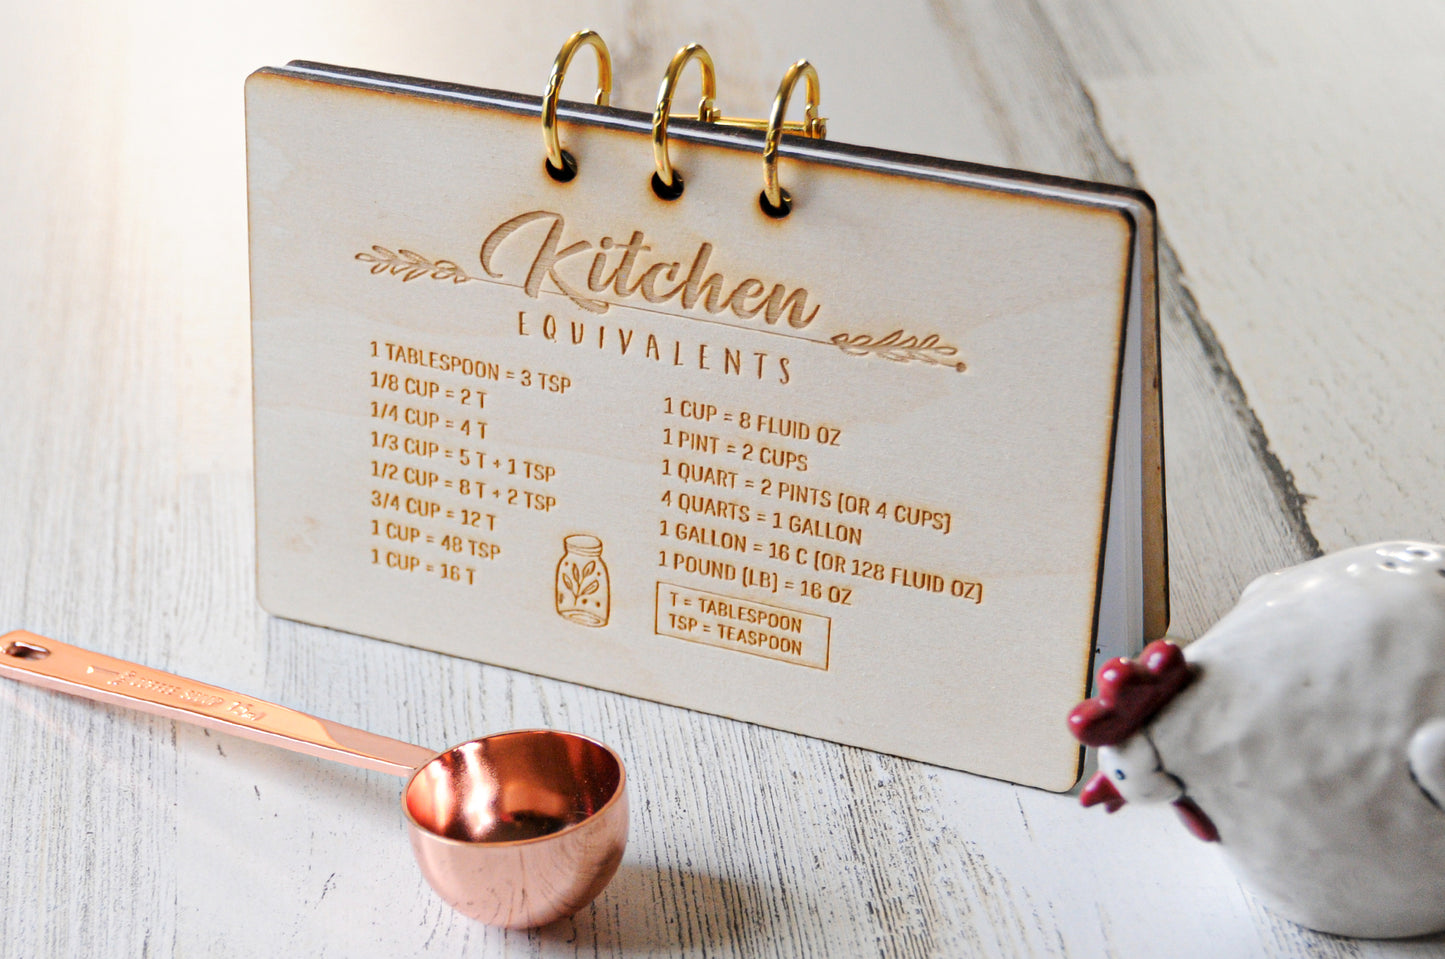 Kitchen
EQUIVALENTS
1 TABLESPOON = 3 TSP
1/8 CUP = 2 T
1/4 CUP = 4 T
1/3 CUP = 5 T + 1 TSP
1/2 CUP = 8 T + 2 TSP
3/4 CUP = 12 T
1 CUP = 48 TSP
1 CUP = 16 T
1 CUP = 8 FLUID OZ
1 PINT = 2 CUPS
1 QUART = 2 PINTS (OR 4 CUPS)
4 QUARTS = 1 GALLON
1 GALLON = 16 C (OR 128 FLUID OZ)
1 POUND (LB) = 16 OZ
T = TABLESPOON
TSP = TEASPOON
COFFEE SCOOP 15ml